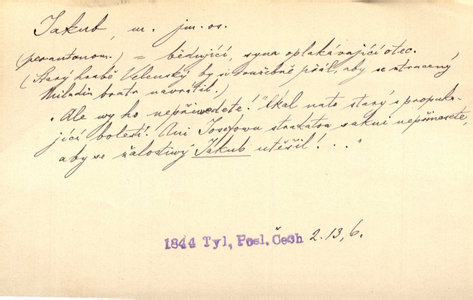 Jakub, m. jm. os.
(per antonom.) = bědující, syna oplakávající otec.
(Starý hrabě Velenský by si toužebně přál, aby se ztracený
Miladin bratr navrátil.)
"Ale wy ho nepřiwedete! "lkal nato starý s propuka-
jící bolestí. Ani Josefowu strakatou sukni nepřinesete,
aby se žalostiwý Jakub utěšil! . . ."
1844 Tyl, Posl. Čech 2.13,6.